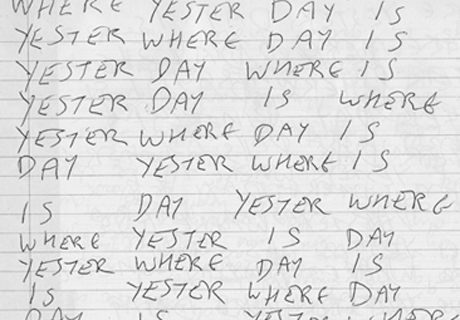 WHERE YESTER DAY IS
YESTER WHERE DAY IS
YESTER DAY WHERE IS
YESTER DAY IS WHERE
YESTER WHERE DAY IS
DAY YESTER WHERE IS
IS DAY YESTER WHERE
WHERE YESTER IS DAY
YESTER WHERE DAY IS
IS YESTER WHERE DAY
DAY IS YESTER WHERE